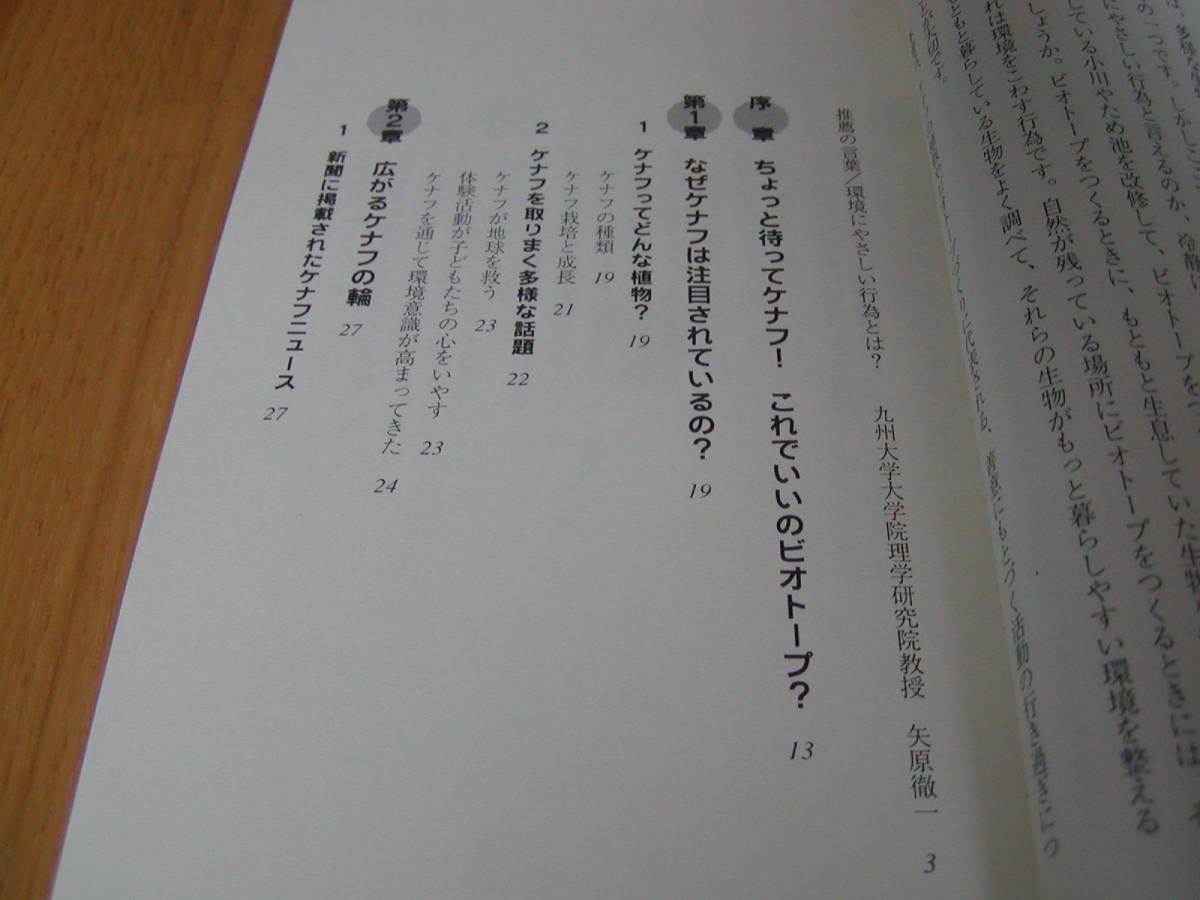 のーつです。しかし
にやさしい行為と言えるのか、冷静に
している小川やため池を改修して、ビオトープをつ
しょうか。ビオトープをつくるときに、もともと生息していた生物
れは環境をこわす行為です。自然が残っている場所にビオトープをつくるときには、そ
ともと暮らしている生物をよく調べて、それらの生物がもっと暮らしやすい環境を整える
が大切です。
推薦の言葉/環境にやさしい行為とは? 九州大学大学院理学研究院教授 矢原徹一 3
序章 ちょっと待ってケナフ! これでいいのビオトープ? 13
第1章 なぜケナフは注目されているの? 19
1 ケナフってどんな植物? 19
ケナフの種類 19
ケナフ栽培と成長 21
2 ケナフを取りまく多様な話題 22
ケナフが地球を救う 23
体験活動が子どもたちの心をいやす 23
ケナフを通じて環境意識が高まってきた 24
第2章 広がるケナフの輪 27
1 新聞に掲載されたケナフニュース 27